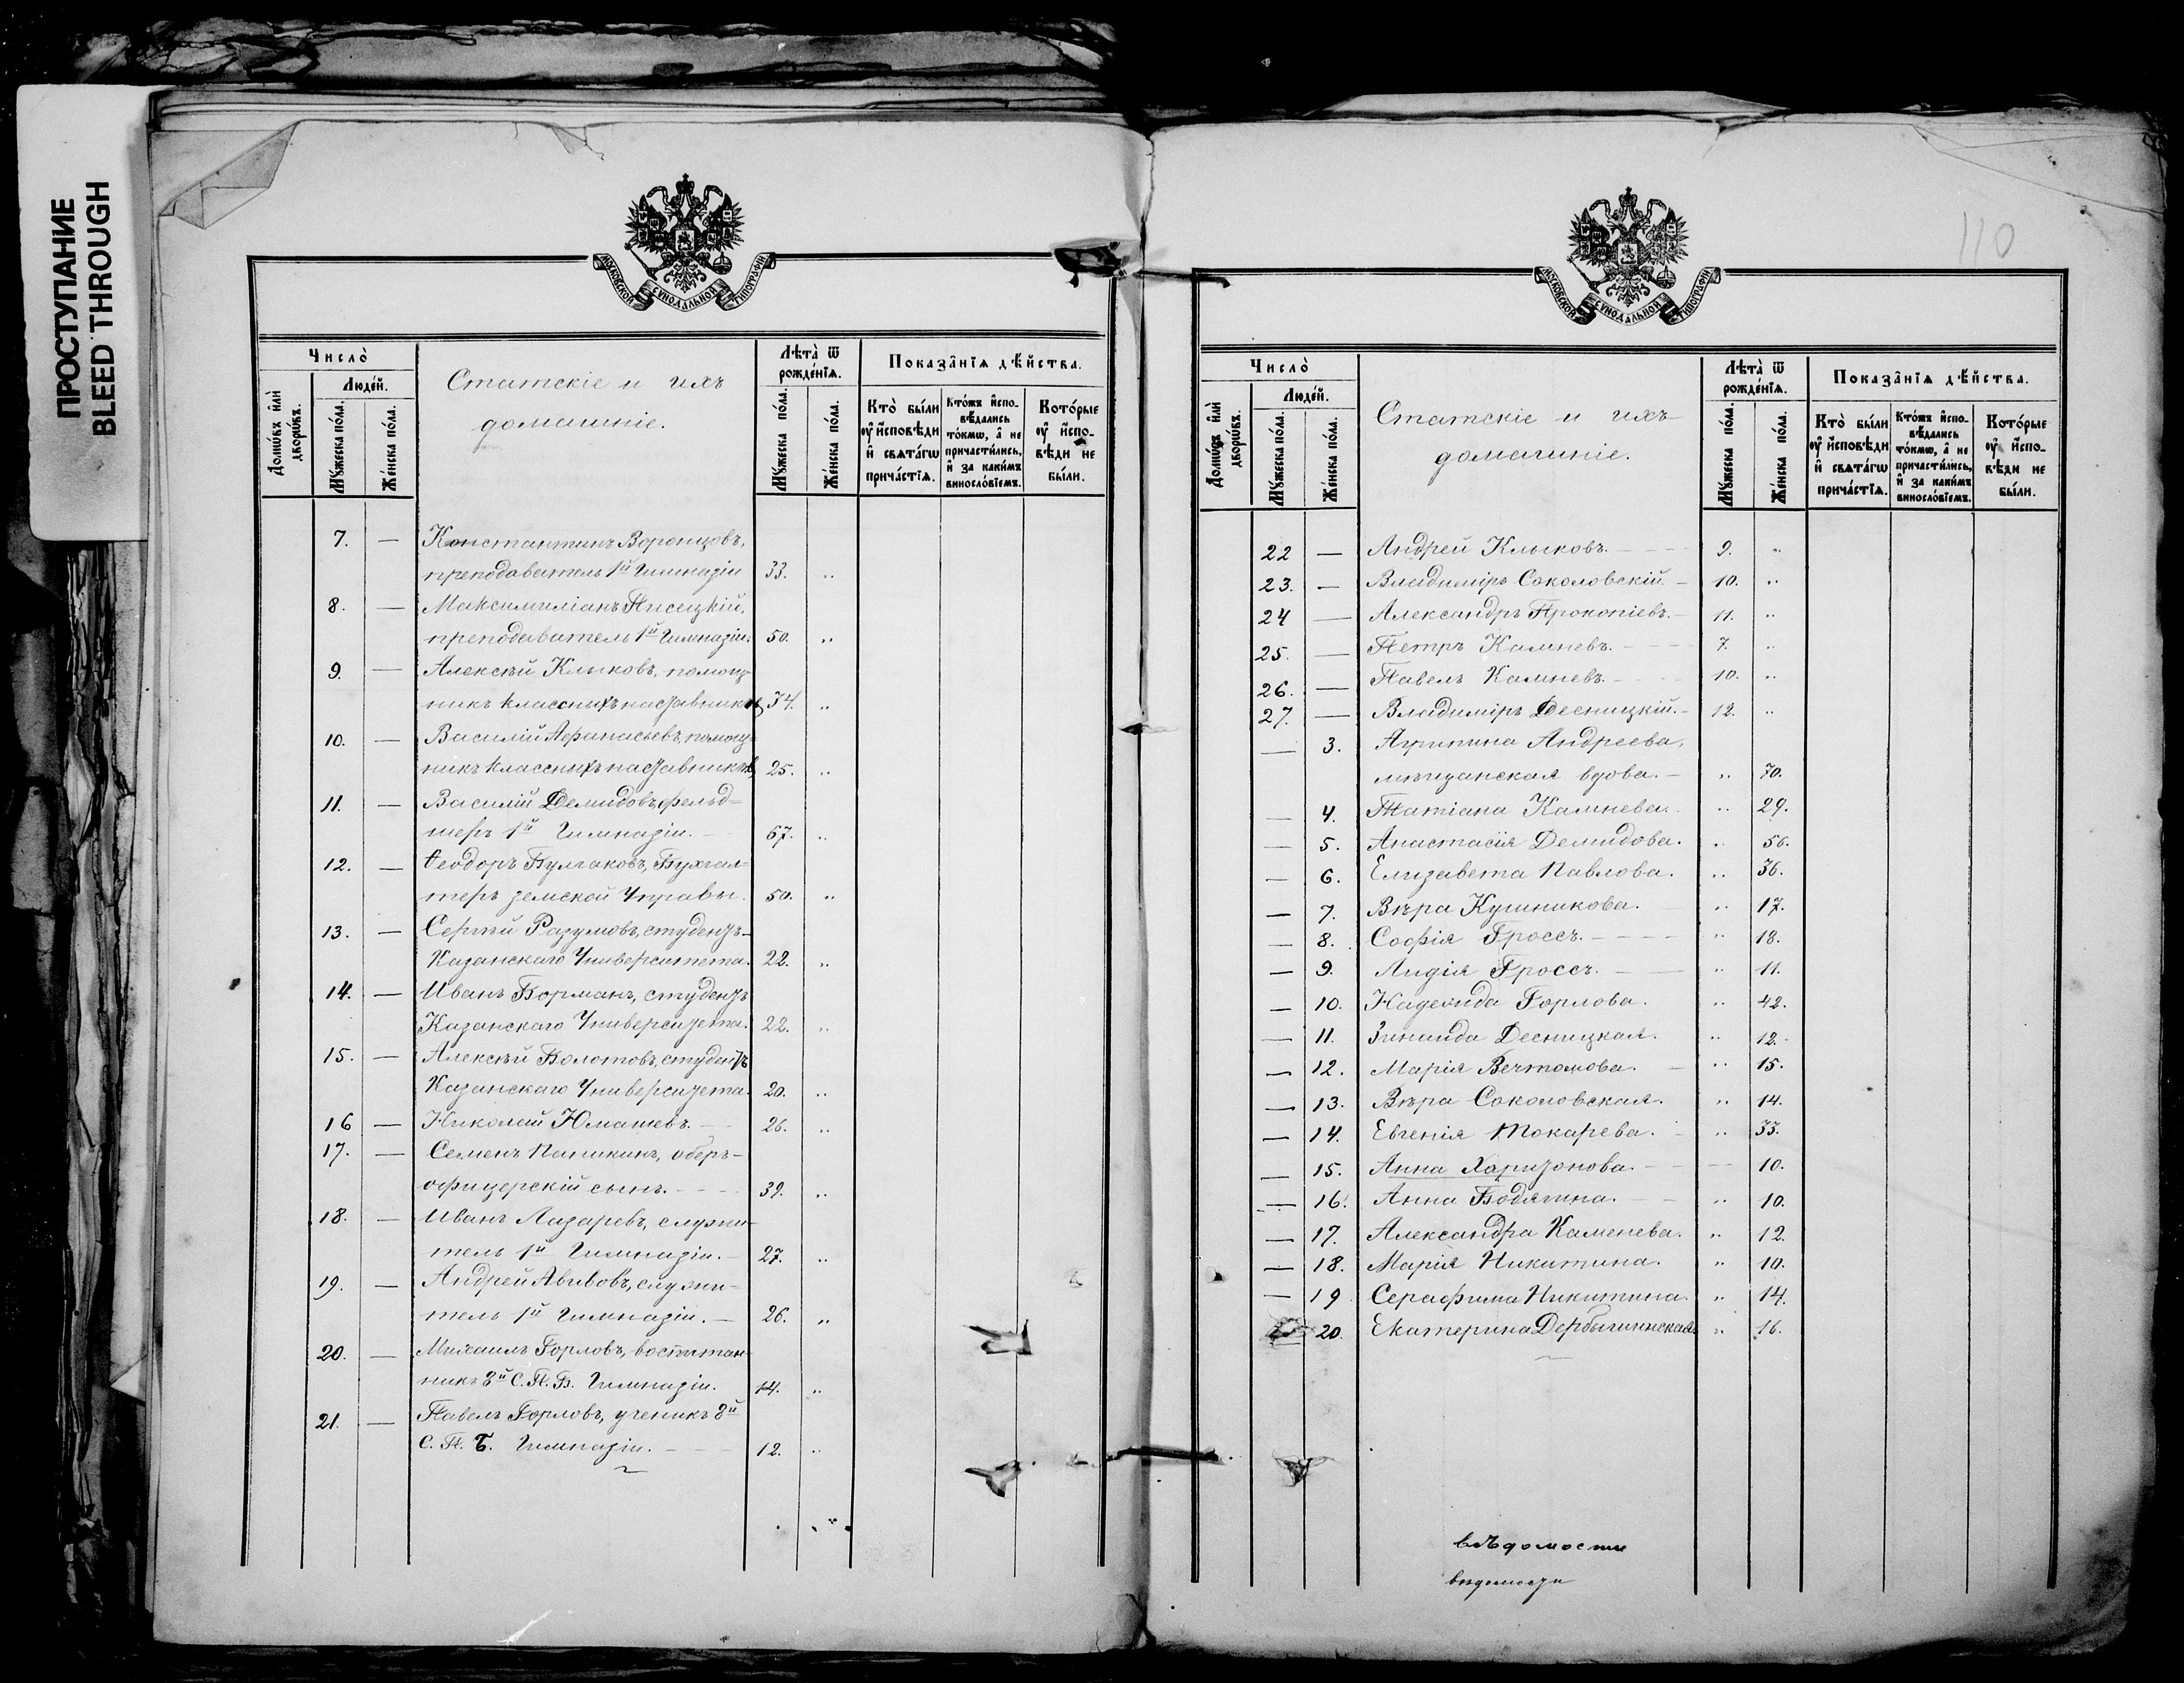 ПРОСТУПАНИЕ
BLEED THROUGH
МОСКОВСКОЙ СѴНОДАЛЬНОЙ ТИПОГРАФІИ
Число̀
Домѡ́въ и҆лѝ дворѡ́въ.
Люде́й.
Мꙋ́жеска по́ла.
Же́нска по́ла.
Статскіе и ихъ
домашніе.
Лѣта̀ ѿ рожде́нїѧ.
Мꙋ́жеска по́ла.
Же́нска по́ла.
Показа̑нїѧ дѣ́йства.
Кто̀ бы́ли
оу҆ и҆сповѣ́ди
и҆ свѧта́гѡ
прича́стїѧ.
Кто́жъ и҆спо-
вѣ́дались
то́кмѡ, а҆ не
причасти́лись,
и҆ за каки́мъ
винослóвїемъ.
Кото́рые
оу҆ и҆спо-
вѣ́ди не
бы́ли.
7. — Константинъ Воронцовъ,
преподаватель 1й Гимназіи 33. „
8. — Максимиліанъ Писецкій,
преподаватель 1й Гимназіи. 50. „
9. — Алексѣй Клыковъ, помощ-
никъ классныхъ наставниковъ 34. „
10. — Василій Афанасьевъ, помощ-
никъ классныхъ наставниковъ 25. „
11. — Василій Демидовъ, фельд-
шеръ 1й Гимназіи. — 67. „
12. — Ѳеодоръ Булгаковъ, Бухгал-
теръ земской Управы. 50. „
13. — Сергѣй Разумовъ, студентъ
Казанскаго Университета. 22. „
14. — Иванъ Борманъ, студентъ
Казанскаго Университета. 22. „
15. — Алексѣй Болотовъ, студентъ
Казанскаго Университета. 20. „
16 — Николай Юматовъ. — 26. „
17. — Семенъ Паникинъ, оберъ-
офицерскій сынъ. — 39. „
18. — Иванъ Лазаревъ, служи-
тель 1й Гимназіи. — 27. „
19. — Андрей Авивовъ, служи-
тель 1й Гимназіи. — 26. „
20. — Михаилъ Горловъ, воспитан-
никъ 8й С.П.Б. Гимназіи. 14. „
21. — Павелъ Горловъ, ученикъ 8й
С.П.Б. Гимназіи. — 12. „
110
МОСКОВСКОЙ СѴНОДАЛЬНОЙ ТИПОГРАФІИ
Число̀
Домѡ́въ и҆лѝ дворѡ́въ.
Люде́й.
Мꙋ́жеска по́ла.
Же́нска по́ла.
Статскіе и ихъ
домашніе.
Лѣта̀ ѿ рожде́нїѧ.
Мꙋ́жеска по́ла.
Же́нска по́ла.
Показа̑нїѧ дѣ́йства.
Кто̀ бы́ли
оу҆ и҆сповѣ́ди
и҆ свѧта́гѡ
прича́стїѧ.
Кто́жъ и҆спо-
вѣ́дались
то́кмѡ, а҆ не
причасти́лись,
и҆ за каки́мъ
винослóвїемъ.
Кото́рые
оу҆ и҆спо-
вѣ́ди не
бы́ли.
22 — Андрей Клыковъ. — 9. „
23. — Владиміръ Соколовскій. — 10. „
24 — Александръ Прокопіевъ. — 11. „
25. — Петръ Камневъ. — 7. „
26. — Павелъ Камневъ. — 10. „
27. — Владиміръ Десницкій. — 12. „
— 3. Агрипина Андреева,
мѣщанская вдова. — „ 70.
— 4. Татіана Камнева. „ 29.
— 5. Анастасія Демидова. „ 56.
— 6. Елизавета Павлова. „ 36.
— 7. Вѣра Кушникова. „ 17.
— 8. Софія Гроссъ. — „ 18.
— 9. Лидія Гроссъ. — „ 11.
— 10. Надежда Горлова. „ 42.
— 11. Зинаида Десницкая. „ 12.
— 12. Марія Вечтомова. — „ 15.
— 13. Вѣра Соколовская. „ 14.
— 14. Евгенія Токарева. „ 33.
— 15. Анна Харитонова. — 10.
— 16. Анна Бодягина. — „ 10.
— 17. Александра Каменева. „ 12.
— 18. Марія Никитина. „ 10.
— 19 Серафима Никитина. „ 14.
— 20. Екатерина „ 16.
вѣдомости
вѣдомости